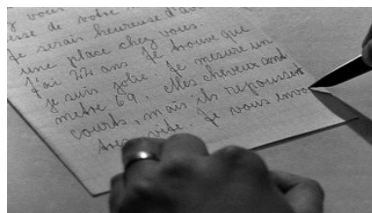 vous
de votre
Je serais heureuse d'a
une place chez vous
J'ai 22 ans. Je trouve que
je suis jolie. Je mesure un
mètre 69. Mes cheveux sont
courts, mais ils repoussent
très vite. Je vous envo